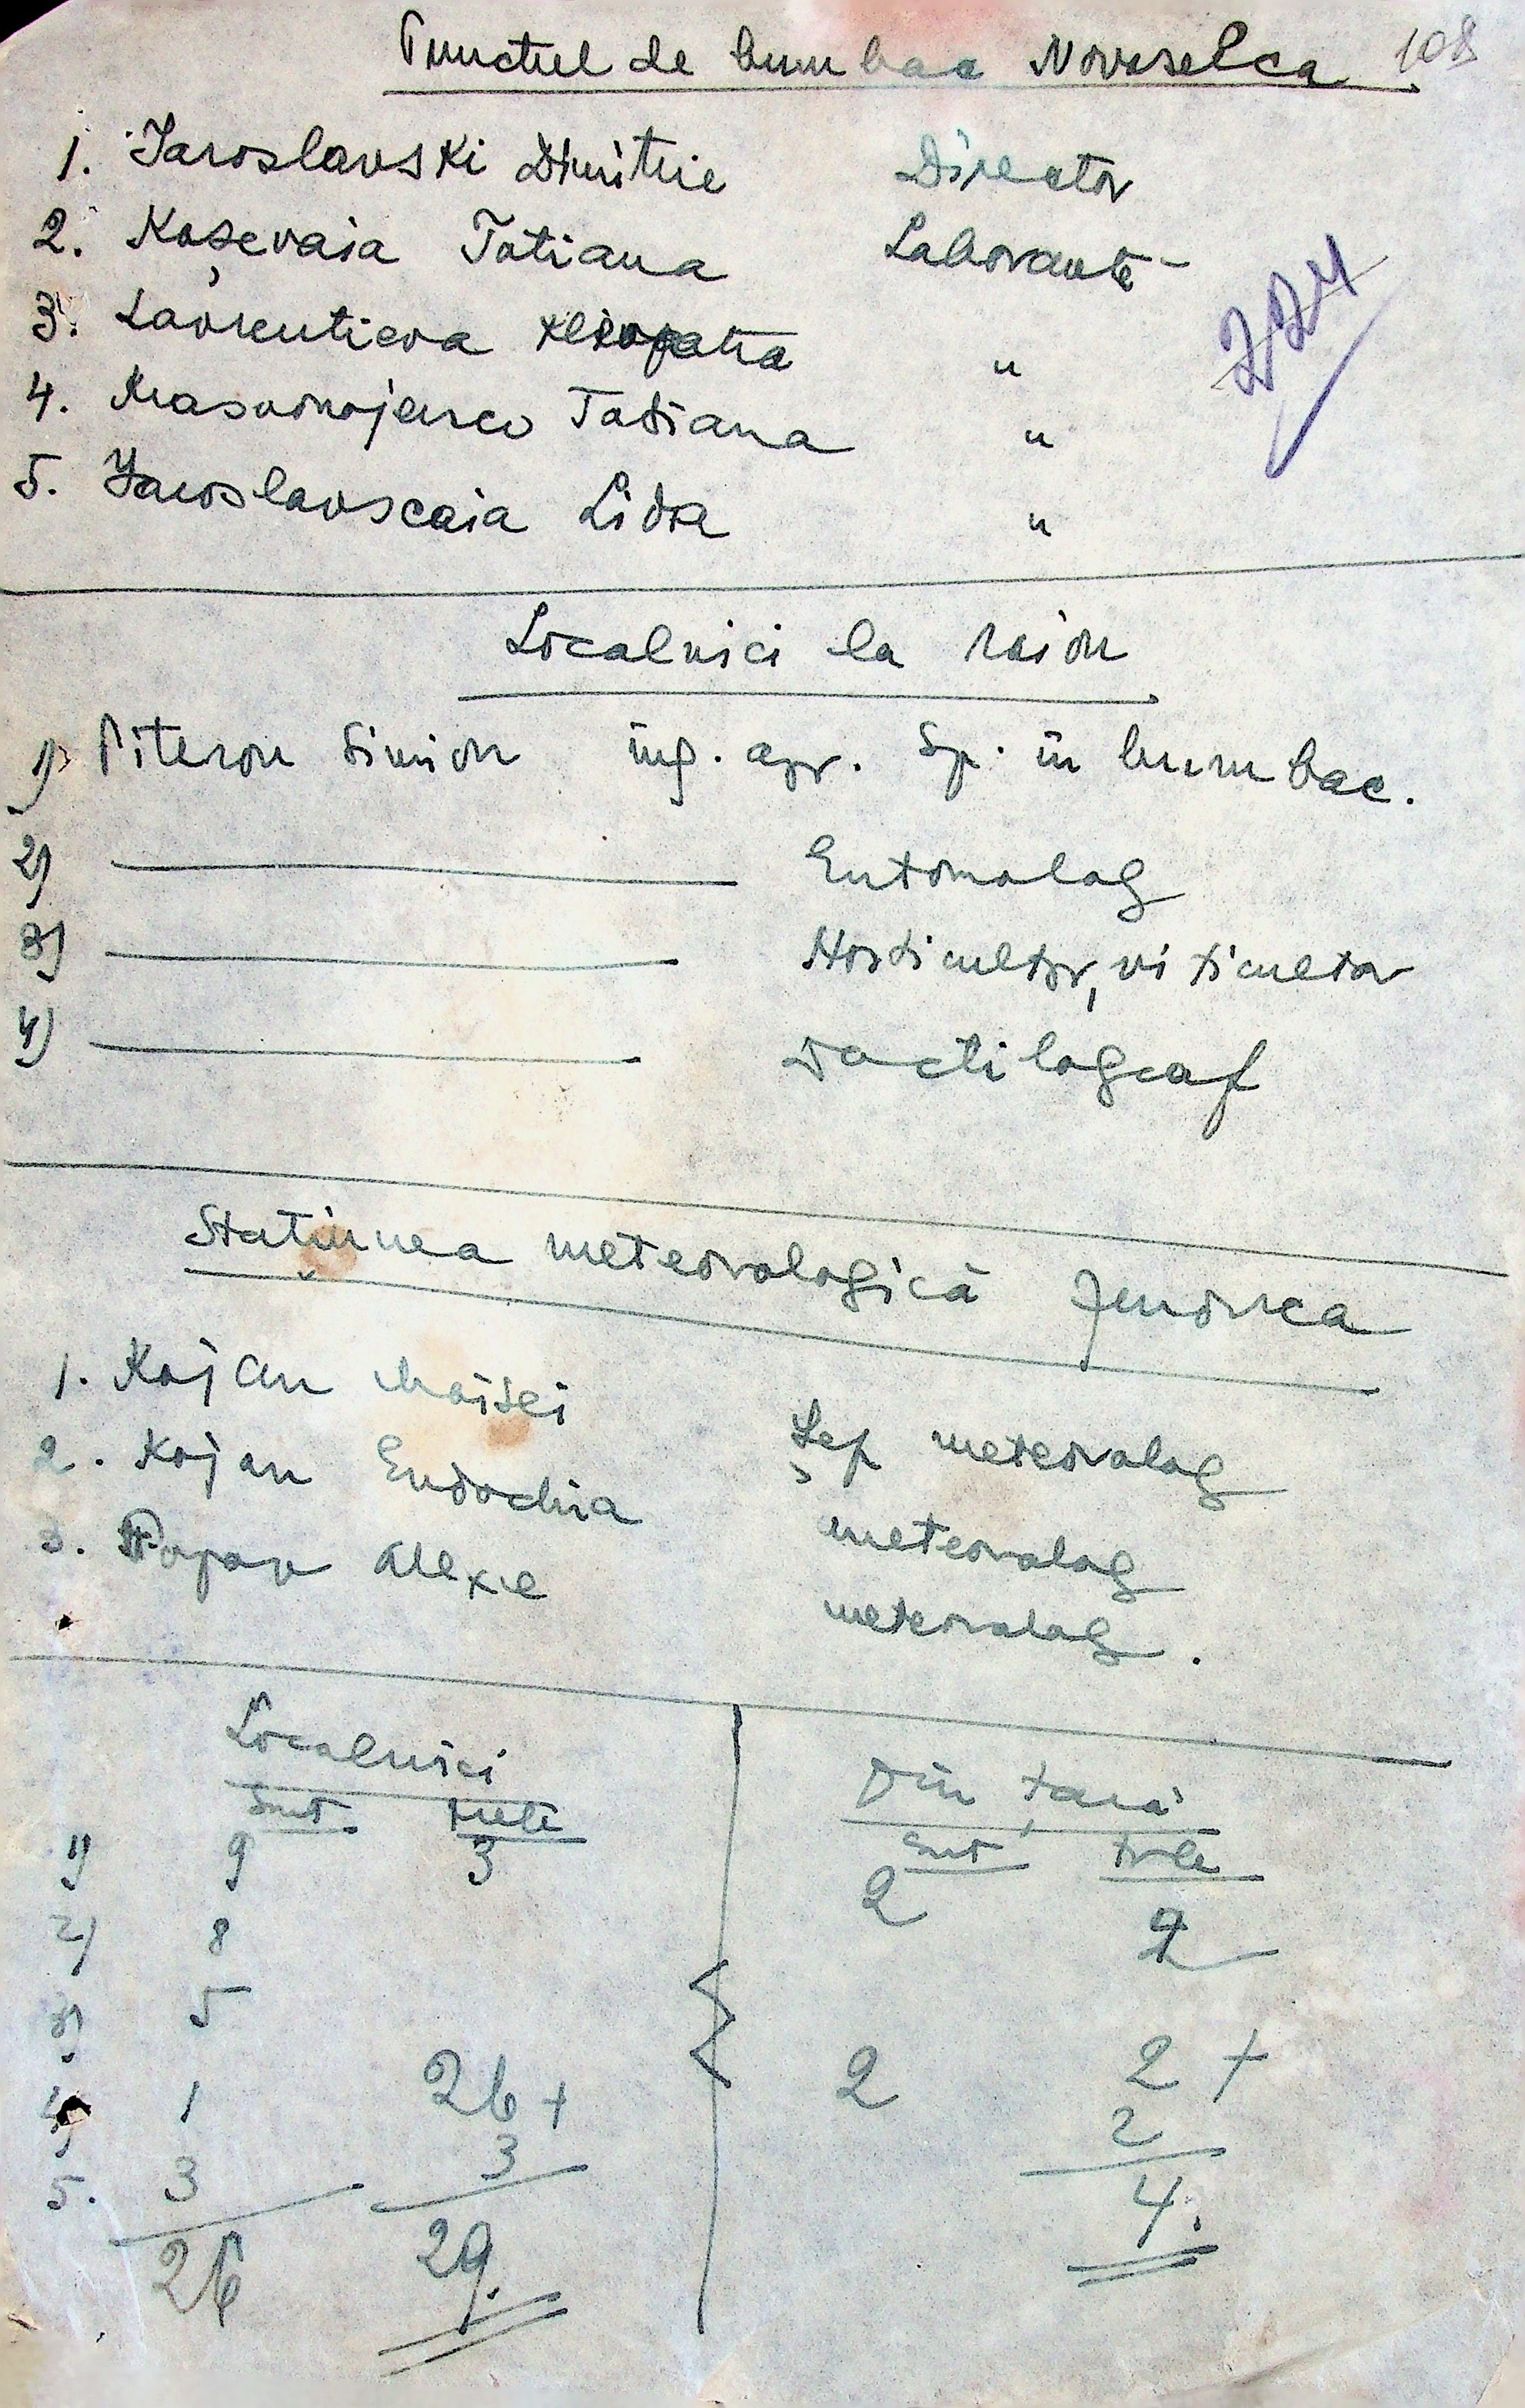 Punctul de bumbac Novoselca 108
1. Iaroslavski Dimitrie Director
2. Koșevaia Tatiana Laborantă
3. Lavrentieva Kleopatra "
224
4. Krasnojenco Tatiana "
5. Iaroslavscaia Lida "
Localnici la raion
1) Piteron Simion ing. agr. Sp. în bumbac.
2) Entomolog
3) Horticultor, viticultor
4) Dactilograf
Stațiunea meteorologică
1. Kojan Moisei Șef meteorolog
2. Kojan Eudochia meteorolog
3. Popov Alexe meteorolog.
Localnici Din țară
Sunt treb Sunt treb
1) 9 3 2 2
2) 8
3) 5
4) 1 26 + 2 2 +
5. 3 3 2
26 29. 4.